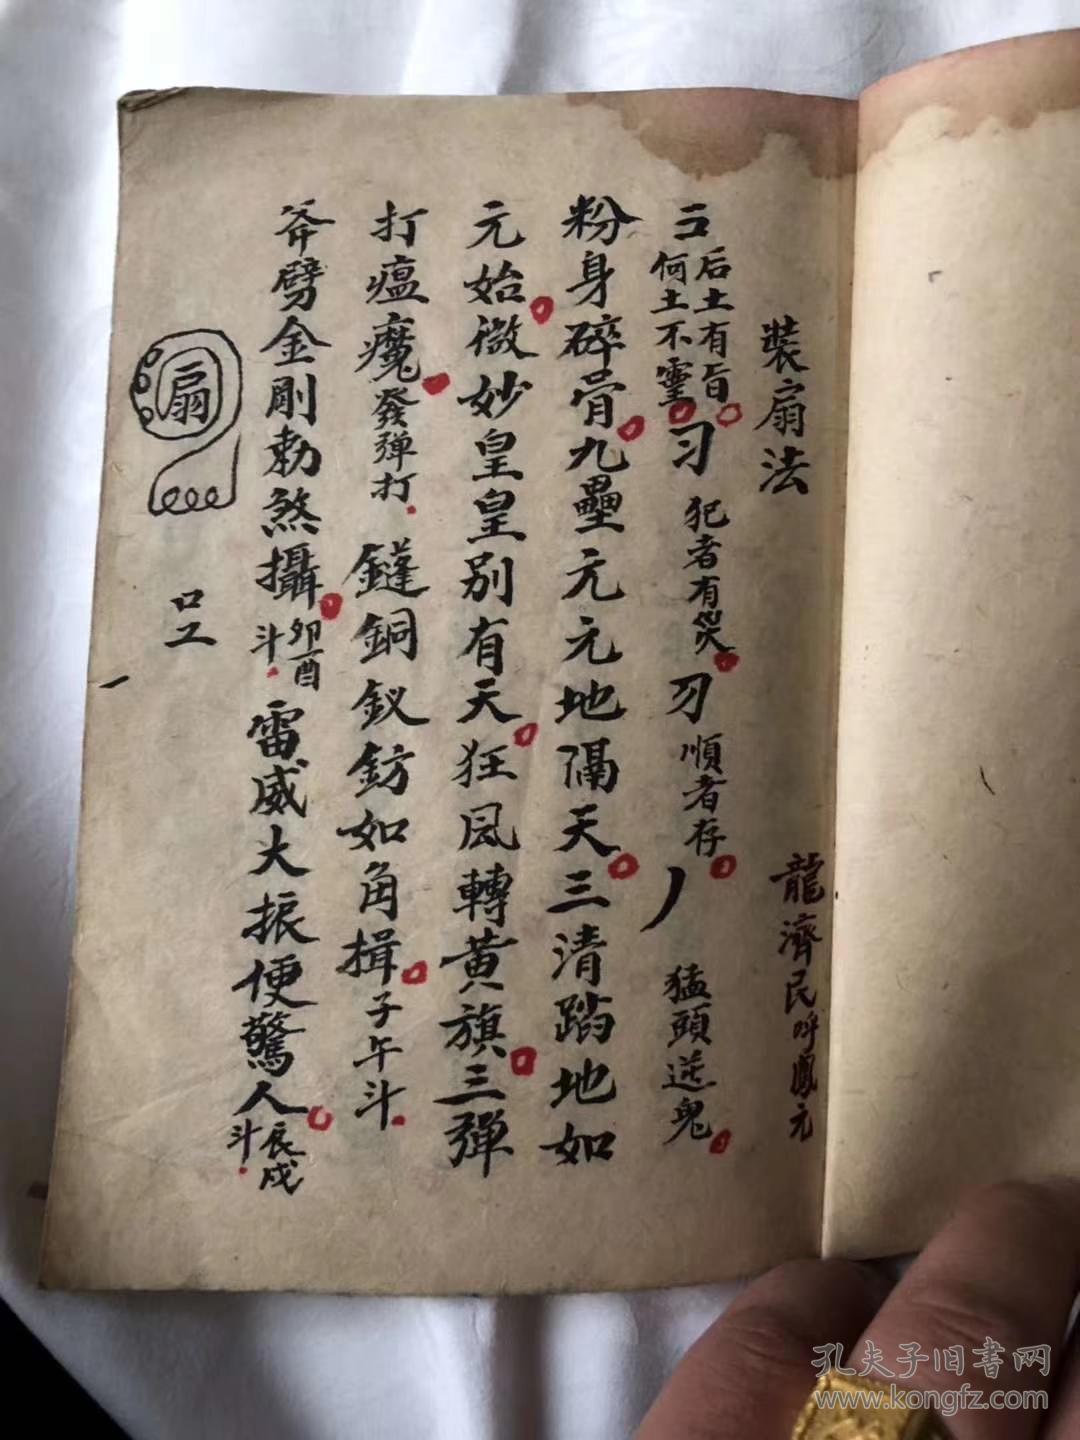 裝扇法 龍濟民呼鳳元
后土有旨 何土不靈 犯者有災 順者存 猛頭送鬼
粉身碎骨九壘亢元地隔天三清蹈地如
元始微妙皇皇別有天狂風轉黃旗三弹
打瘟魔發弹打 銅釵鈁如角揖子午斗
斧劈金剛勅煞攝卯酉斗雷威大振便驚人辰戌斗
扇
孔夫子旧书网
www.kongfz.com